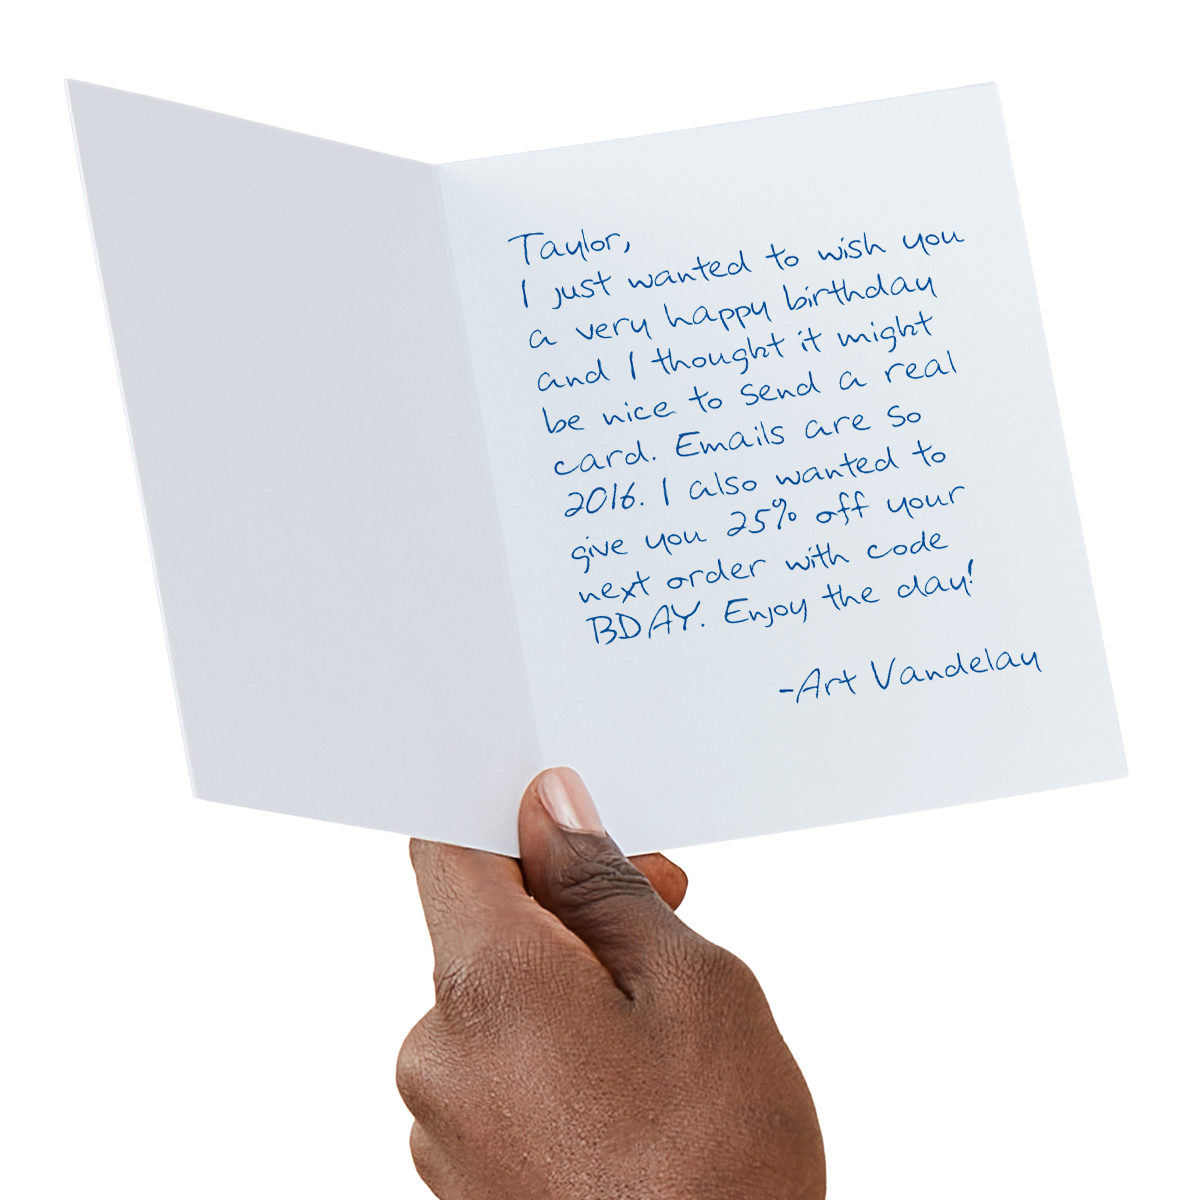 Taylor,
I just wanted to wish you
a very happy birthday
and I thought it might
be nice to send a real
card. Emails are so
2016. I also wanted to
give you 25% off your
next order with code
BDAY. Enjoy the day!
-Art Vandelay